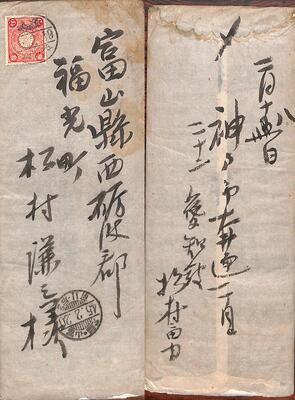 富山縣西砺波郡
福光町
松村謙三様
45.2.20
二月十八日
神戸市大井通一丁目
二十二
愛知敏
松村